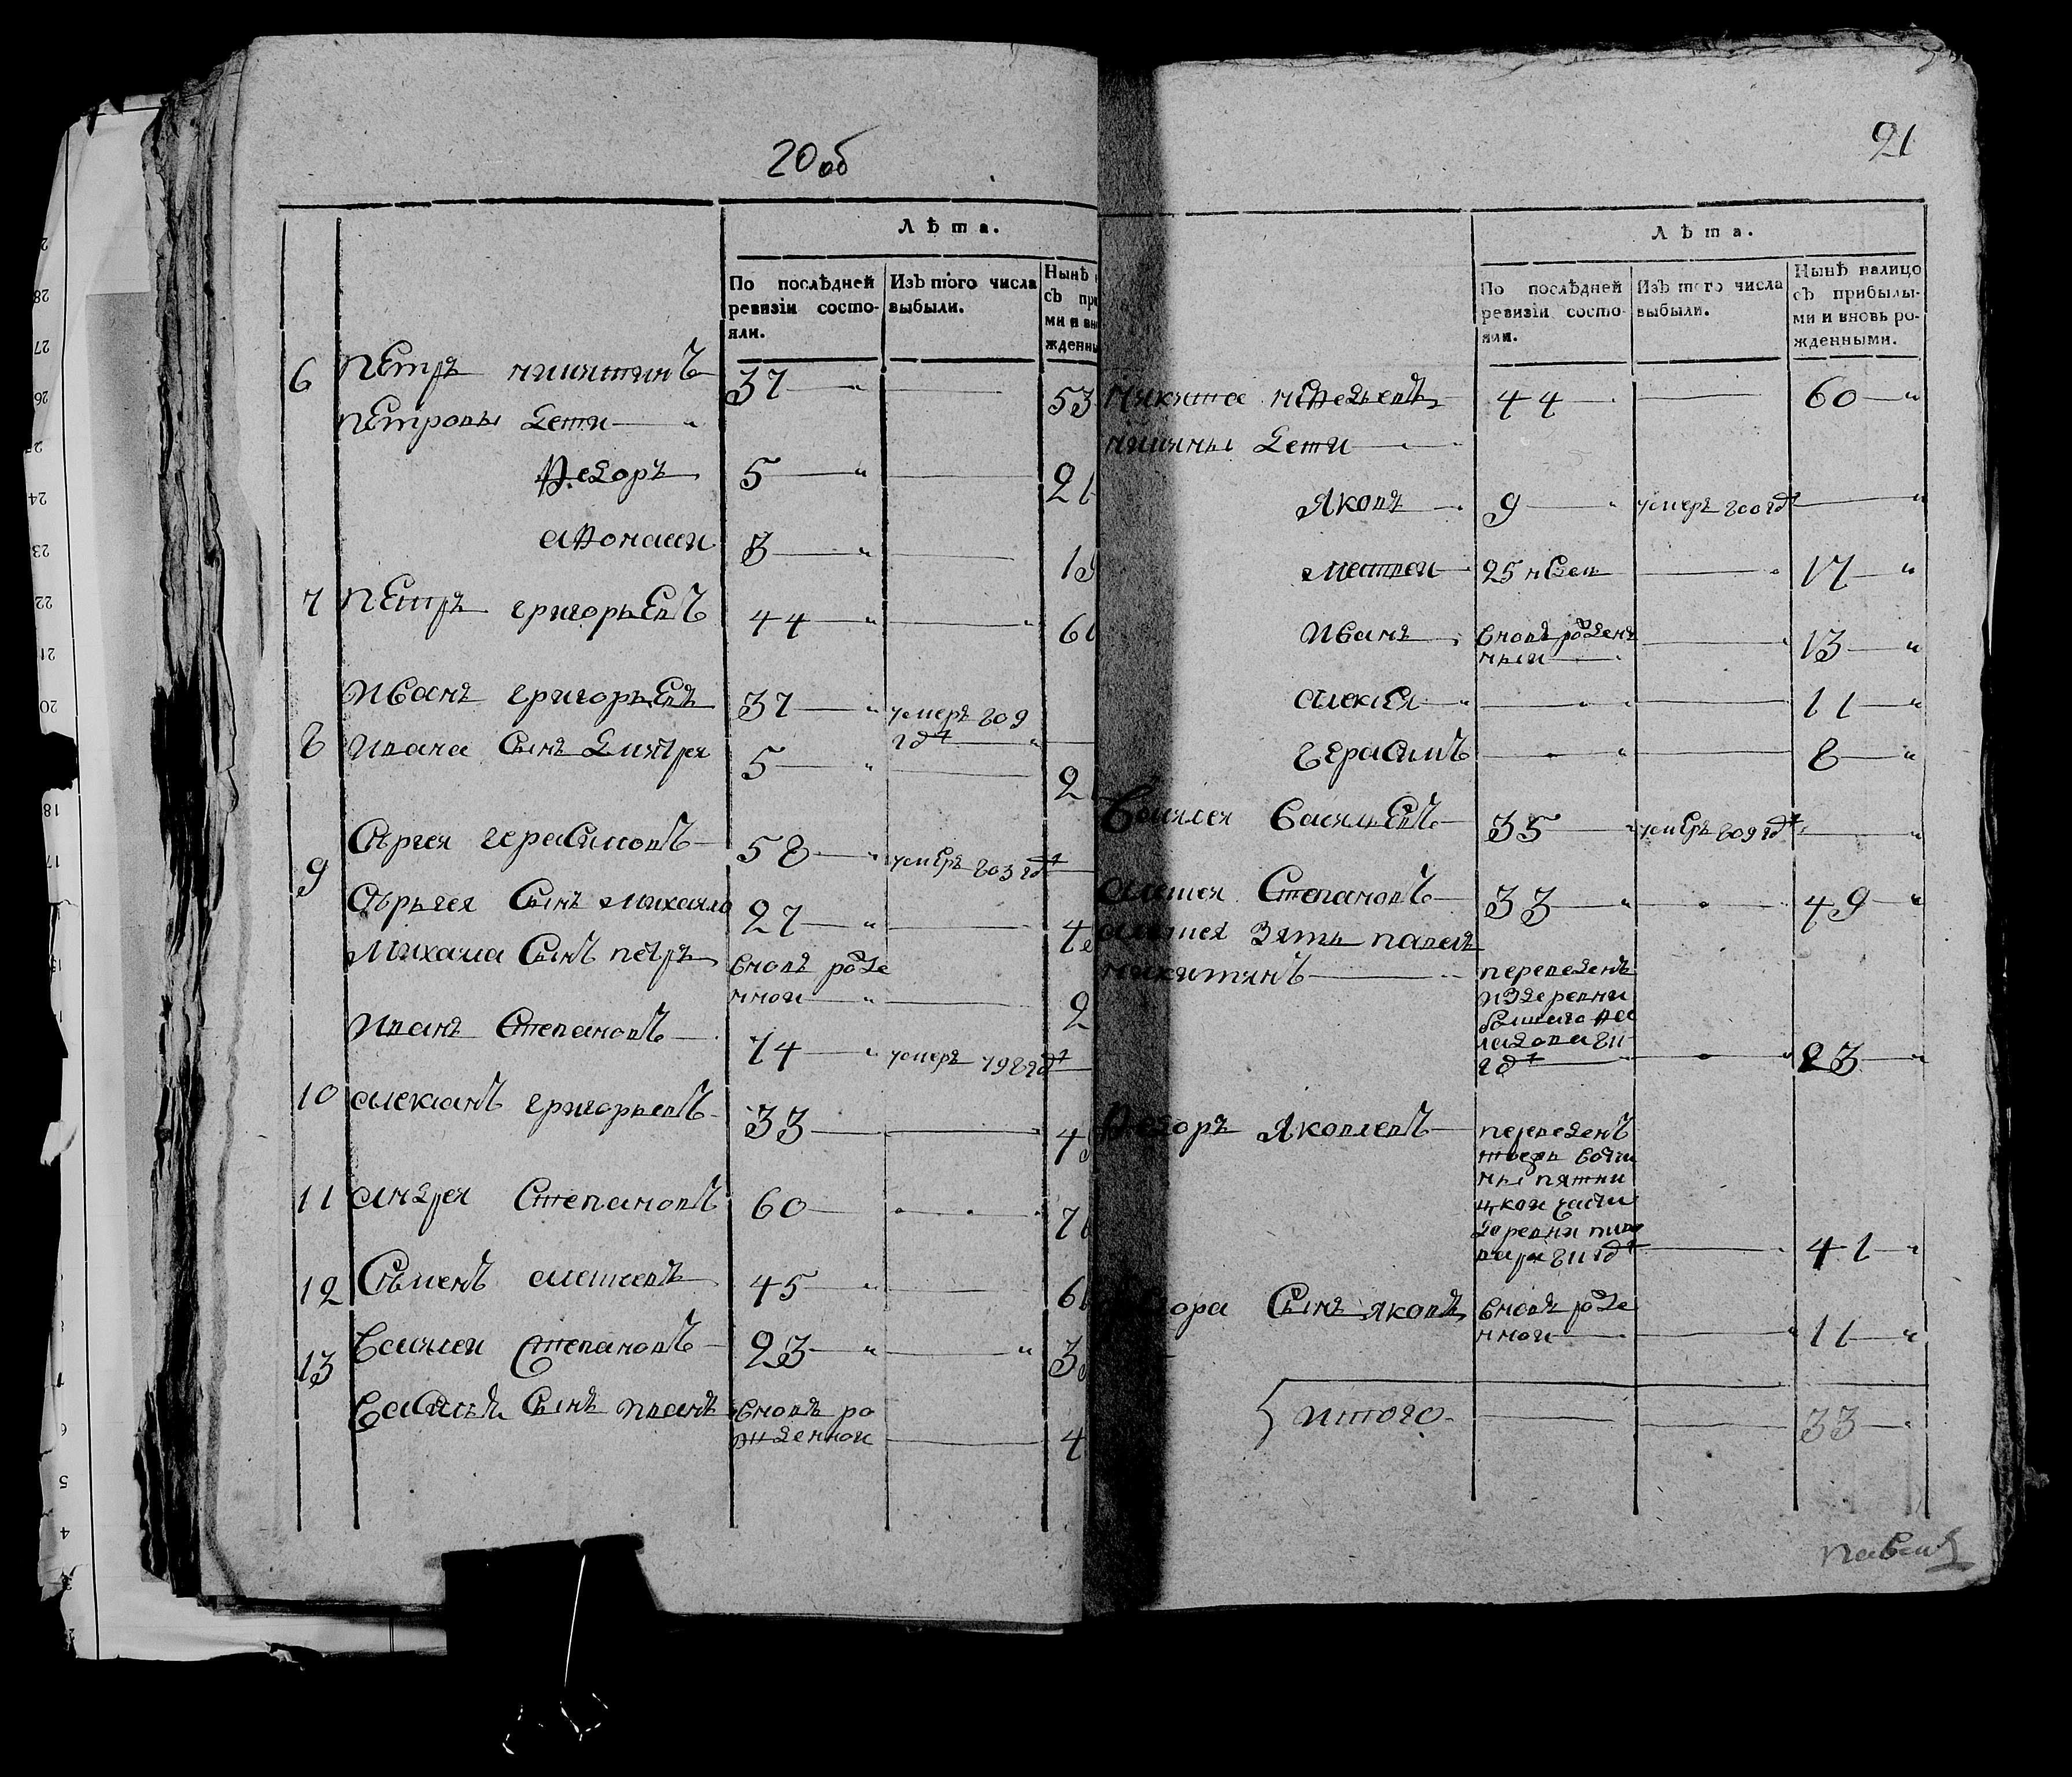 20об
Лѣта.
По послѣдней ревизіи состояли.
Изъ того числа выбыли.
Нынѣ
съ при
ми и вно
жденны
6 Петръ никитинъ 37 53
Петровы дети
Ѳедоръ 5 21
аѲонаси 3 19
7 Петръ григорьевъ 44 60
Иванъ григорьевъ 37 умеръ 809
году
8 ивана Сынъ Дмитрей 5 21
9 Сергея герасимовъ 58 умеръ 803 году
Сѣргея Сынъ михаила 27
Михаила Сынъ петръ вновь рожде
нной 2
Иванъ Степановъ 74 умеръ 798 году
10 алексанъ григорьевъ 33 49
11 андрея Степановъ 60 76
12 Сѣменъ алексеевъ 45 61
13 Василеи Степановъ 23 39
Василья Сынъ иванъ вновь ро
жденной 4
21
Лѣта.
По послѣдней ревизіи состояли.
Изъ того числа выбыли.
Нынѣ налицо
съ прибылы-
ми и вновь ро-
жденными.
Никита меѲедьевъ 44 60
никиты дети
Яковъ 9 умеръ 800 году
матвеи 25 недел 17
Иванъ вновь рожден
ныи 13
алексея 11
герасимъ 8
Василея Васильевъ 35 умеръ 809 году
алексея Степановъ 33 49
алексея Зять павелъ
никитинъ переведенъ
из деревни
811
году 23
Ѳедоръ Яковлевъ переведенъ
вотчи
ны пятни
цкои части
деревни
811 году 41
Ѳедора Сынъ яковъ вновь рожде
нной 11
итого 33
павелъ